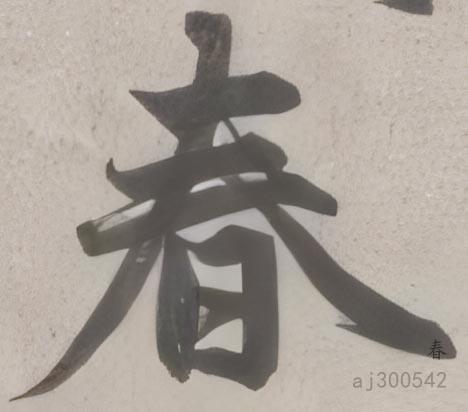 春
春
aj300542